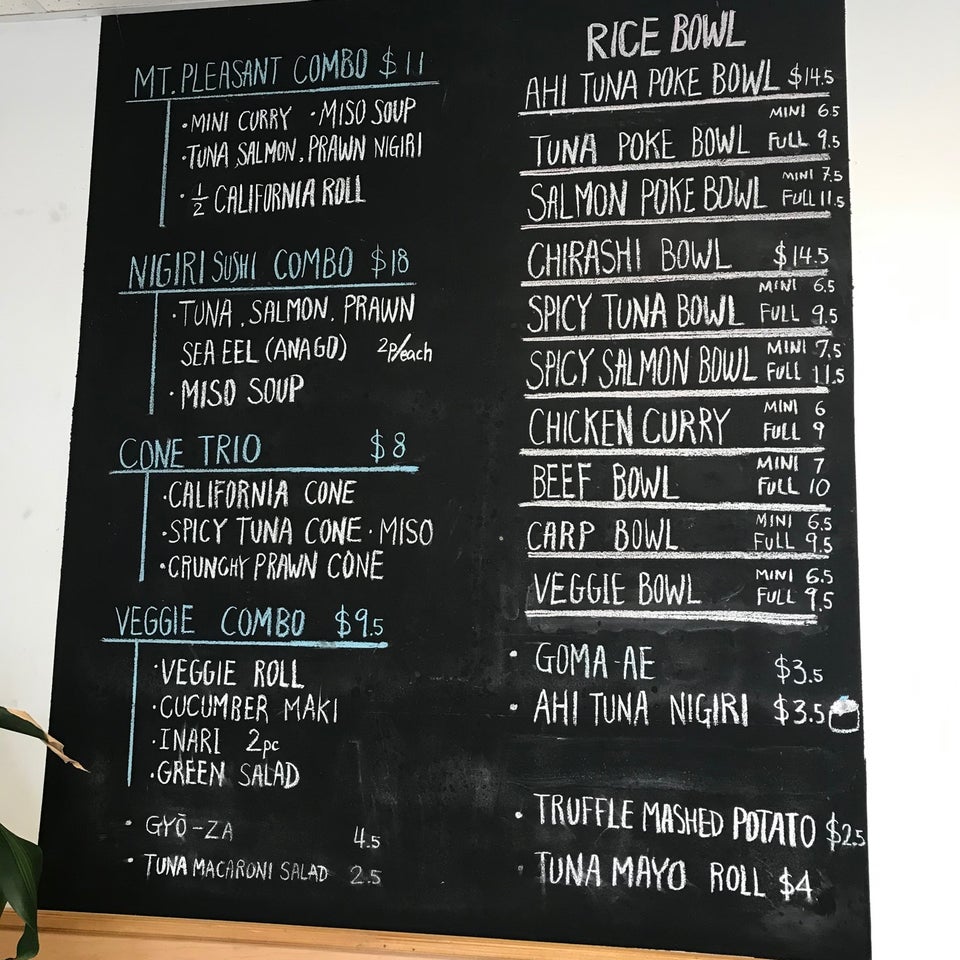 MT. PLEASANT COMBO $11
· MINI CURRY · MISO SOUP
· TUNA, SALMON, PRAWN NIGIRI
· ½ CALIFORNIA ROLL
NIGIRI SUSHI COMBO $18
· TUNA, SALMON, PRAWN
SEA EEL (ANAGO) 2P/each
· MISO SOUP
CONE TRIO $8
· CALIFORNIA CONE
· SPICY TUNA CONE · MISO
· CRUNCHY PRAWN CONE
VEGGIE COMBO $9.5
· VEGGIE ROLL
· CUCUMBER MAKI
· INARI 2pc
· GREEN SALAD
· GYŌ-ZA 4.5
· TUNA MACARONI SALAD 2.5
RICE BOWL
AHI TUNA POKE BOWL $14.5
TUNA POKE BOWL MINI 6.5
FULL 9.5
SALMON POKE BOWL MINI 7.5
FULL 11.5
CHIRASHI BOWL $14.5
SPICY TUNA BOWL MINI 6.5
FULL 9.5
SPICY SALMON BOWL MINI 7.5
FULL 11.5
CHICKEN CURRY MINI 6
FULL 9
BEEF BOWL MINI 7
FULL 10
CARP BOWL MINI 6.5
FULL 9.5
VEGGIE BOWL MINI 6.5
FULL 9.5
· GOMA-AE $3.5
· AHI TUNA NIGIRI $3.5
· TRUFFLE MASHED POTATO $2.5
· TUNA MAYO ROLL $4